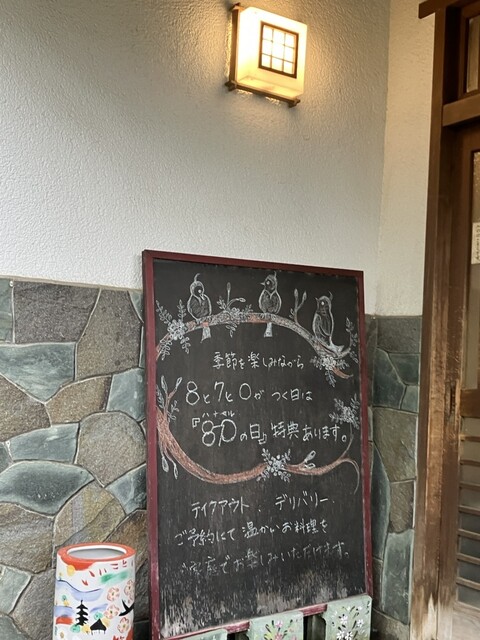 季節を楽しみながら
8と7と0が つく日は
ハナマル
『870の日』特典あります。
テイクアウト . デリバリー.
ご予約にて 温かいお料理を
ご家庭でお楽しみいただけます。